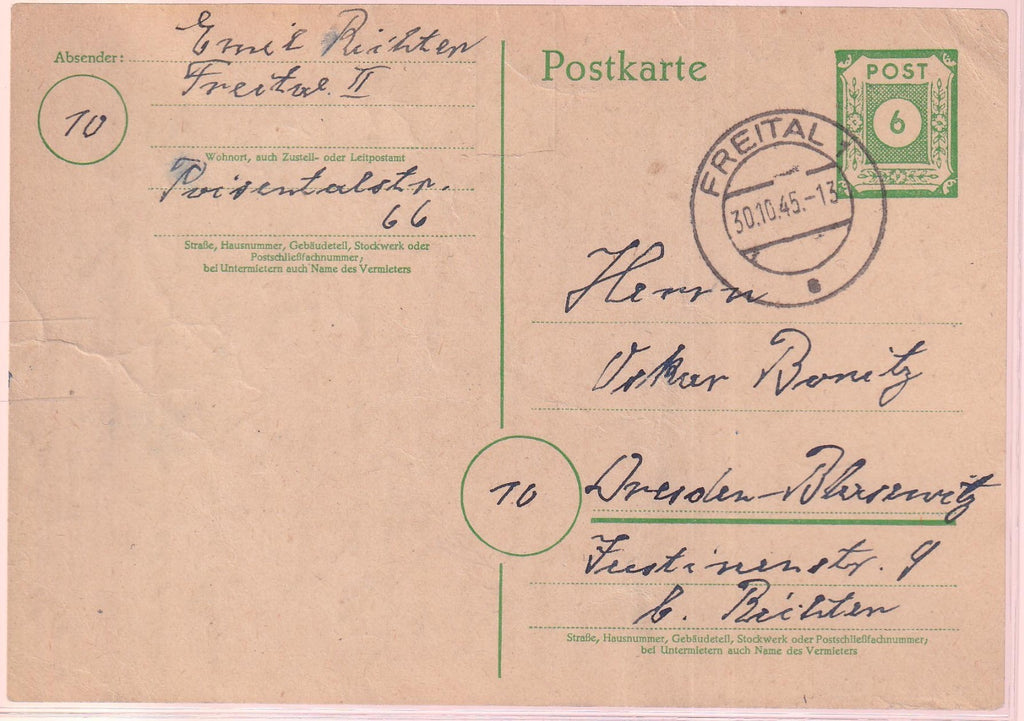 Absender: Emil Richter
Freital II
10
Wohnort, auch Zustell- oder Leitpostamt
Poisentalstr.
66
Straße, Hausnummer, Gebäudeteil, Stockwerk oder
Postschließfachnummer;
bei Untermietern auch Name des Vermieters
Postkarte
POST
6
FREITAL 1
30.10.45.-13
a
Herrn
Oskar Bonitz
10
Dresden-Blasewitz
Justinenstr. 9
b. Richter
Straße, Hausnummer, Gebäudeteil, Stockwerk oder Postschließfachnummer;
bei Untermietern auch Name des Vermieters